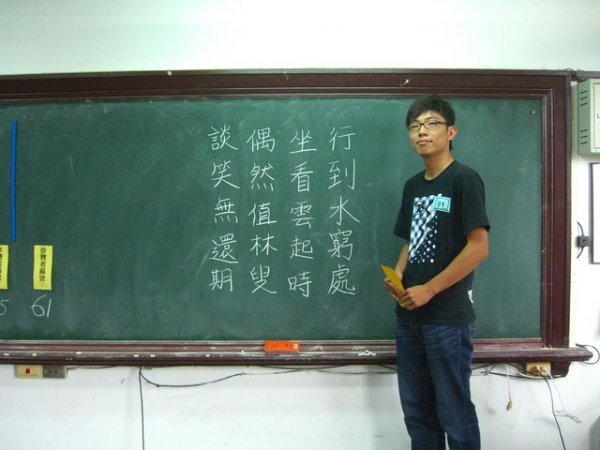 行到水窮處
坐看雲起時
偶然值林叟
談笑無還期
參賽者編號:
61
61